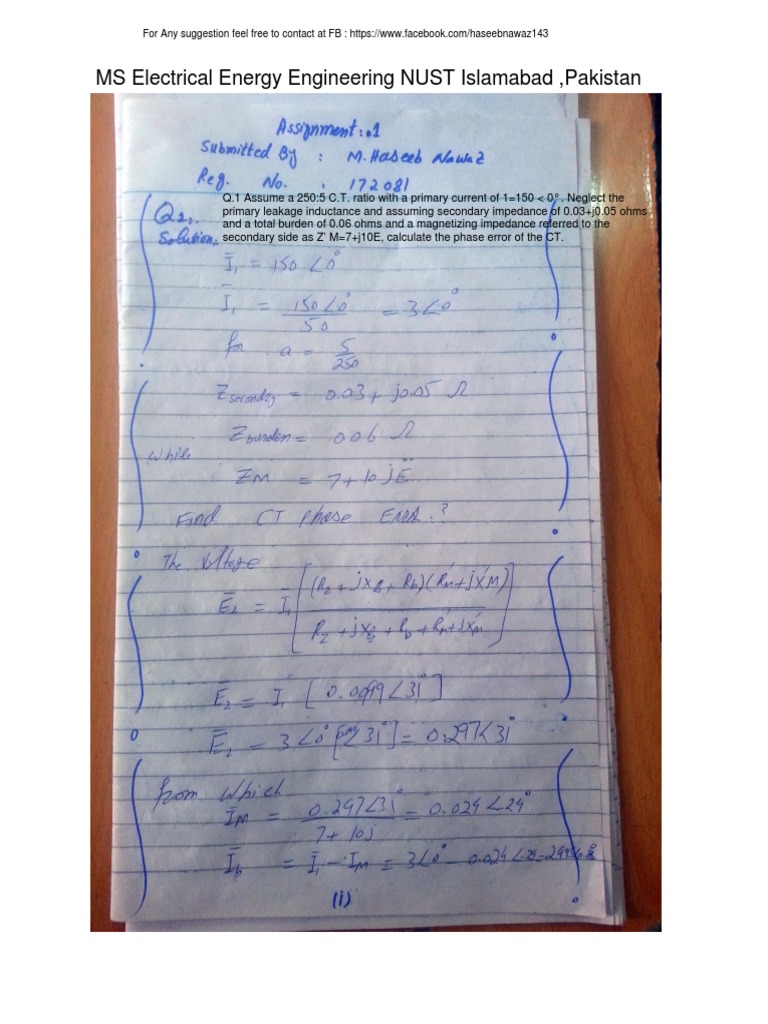 For Any suggestion feel free to contact at FB : https://www.facebook.com/haseebnawaz143
MS Electrical Energy Engineering NUST Islamabad ,Pakistan
Assignment:.1
Submitted By : M.Haseeb Nawaz
Reg. No. : 172081
Q1.
Q.1 Assume a 250:5 C.T. ratio with a primary current of 1=150 < 0° . Neglect the
primary leakage inductance and assuming secondary impedance of 0.03+j0.05 ohms
and a total burden of 0.06 ohms and a magnetizing impedance referred to the
secondary side as Z' M=7+j10E, calculate the phase error of the CT.
Solution:
Ī₁ = 150 ∠0°
Ī₁ = 150∠0° / 50 = 3∠0°
for a = 5/250
Zsecondary = 0.03 + j0.05 Ω
Zburden = 0.06 Ω
while
ZM = 7+10jE
Find CT phase Error.?
The Voltage
Ē₂ = Ī₁ [(R₂+jX₂+Rb)(R'M+jX'M) / R₂+jX₂+Rb+R'M+jX'M]
Ē₂ = Ī₁ [0.099∠31°]
Ē₂ = 3∠0° [∠31°] = 0.297∠31°
from which
ĪM = 0.297∠31° / 7+10j = 0.024∠24°
Īb = Ī₁ - IM = 3∠0° - 0.024
(i)